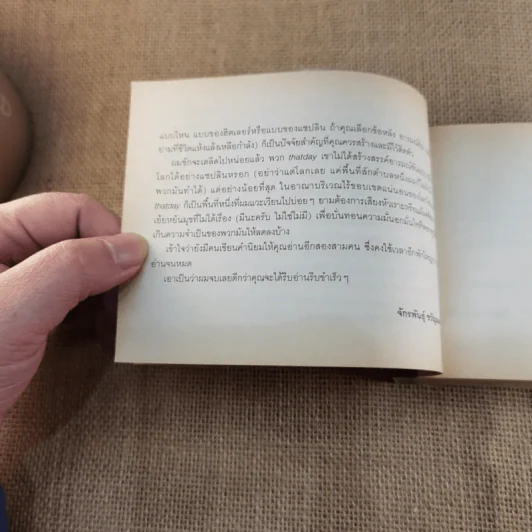 แบบไหน แบบของฮิตเลอร์หรือแบบของแชปลิน ถ้าคุณเลือกข้อหลัง อารมณ์ขัน
ยามที่ชีวิตแห้งแล้งเหลือกำลัง) ก็เป็นปัจจัยสำคัญที่คุณควรสร้างและมีไว้ติดตัว
ผมชักจะเตลิดไปหน่อยแล้ว พวก thatday เขาไม่ได้สร้างสรรค์อารมณ์ขัน
โลกได้อย่างแชปลินหรอก (อย่าว่าแต่โลกเลย แค่พื้นที่สักตำบลหนึ่ง
พวกมันทำได้) แต่อย่างน้อยที่สุด ในอาณาบริเวณไร้ขอบเขตแน่นอน
thatday ก็เป็นพื้นที่หนึ่งที่ผมแวะเวียนไปบ่อย ๆ ยามต้องการเสียงหัวเราะ
เย้ยหยันมุขที่ไม่ได้เรื่อง (มีนะครับ ไม่ใช่ไม่มี) เพื่อบั่นทอนความมั่นอกมั่นใจ
เกินความจำเป็นของพวกมันให้ลดลงบ้าง
เข้าใจว่ายังมีคนเขียนคำนิยมให้คุณอ่านอีกสองสามคน ซึ่งคงใช้เวลาอีก
อ่านจนหมด
เอาเป็นว่าผมจบเลยดีกว่าคุณจะได้รีบอ่านรีบขำเร็ว ๆ
จักรพันธุ์